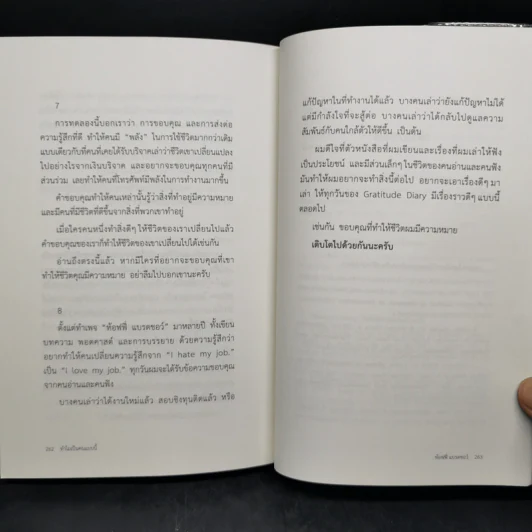 7
การทดลองนี้บอกเราว่า การขอบคุณ และการส่งต่อ
ความรู้สึกที่ดี ทำให้คนมี "พลัง" ในการใช้ชีวิตมากกว่าเดิม
แบบเดียวกับที่คนที่เคยได้รับบริจาคเล่าว่าชีวิตเขาเปลี่ยนแปลง
ไปอย่างไรจากเงินบริจาค และอยากจะขอบคุณทุกคนที่มี
ส่วนร่วม เลยทำให้คนที่โทรศัพท์มีพลังในการทำงานมากขึ้น
คำขอบคุณทำให้คนเหล่านั้นรู้ว่าสิ่งที่ทำอยู่มีความหมาย
และมีคนที่มีชีวิตที่ดีขึ้นจากสิ่งที่พวกเขาทำอยู่
เมื่อใครคนหนึ่งทำสิ่งดีๆ ให้ชีวิตของเราเปลี่ยนไปแล้ว
คำขอบคุณของเราก็ทำให้ชีวิตของเขาเปลี่ยนไปได้เช่นกัน
อ่านถึงตรงนี้แล้ว หากมีใครที่อยากจะขอบคุณที่เขา
ทำให้ชีวิตคุณมีความหมาย อย่าลืมไปบอกเขานะครับ
8
ตั้งแต่ทำเพจ "ท้อฟฟี่ แบรดชอว์" มาหลายปี ทั้งเขียน
บทความ พอดคาสต์ และการบรรยาย ด้วยความรู้สึกว่า
อยากทำให้คนเปลี่ยนความรู้สึกจาก "I hate my job."
เป็น "I love my job." ทุกวันผมจะได้รับข้อความขอบคุณ
จากคนอ่านและคนฟัง
บางคนเล่าว่าได้งานใหม่แล้ว สอบชิงทุนติดแล้ว หรือ
262 ทำไมถึงคนแบบนี้
แก้ปัญหาในที่ทำงานได้แล้ว บางคนเล่าว่ายังแก้ปัญหาไม่ได้
แต่มีกำลังใจที่จะสู้ต่อ บางคนเล่าว่าได้กลับไปดูแลความ
สัมพันธ์กับคนใกล้ตัวให้ดีขึ้น เป็นต้น
ผมดีใจที่ตัวหนังสือที่ผมเขียนและเรื่องที่ผมเล่าให้ฟัง
เป็นประโยชน์ และมีส่วนเล็กๆ ในชีวิตของคนอ่านและคนฟัง
มันทำให้ผมอยากจะทำสิ่งนี้ต่อไป อยากจะเอาเรื่องดีๆ มา
เล่า ให้ทุกวันของ Gratitude Diary มีเรื่องราวดีๆ แบบนี้
ตลอดไป
เช่นกัน ขอบคุณที่ทำให้ชีวิตผมมีความหมาย
เติบโตไปด้วยกันนะครับ
ท้อฟฟี่ แบรดชอว์ 263